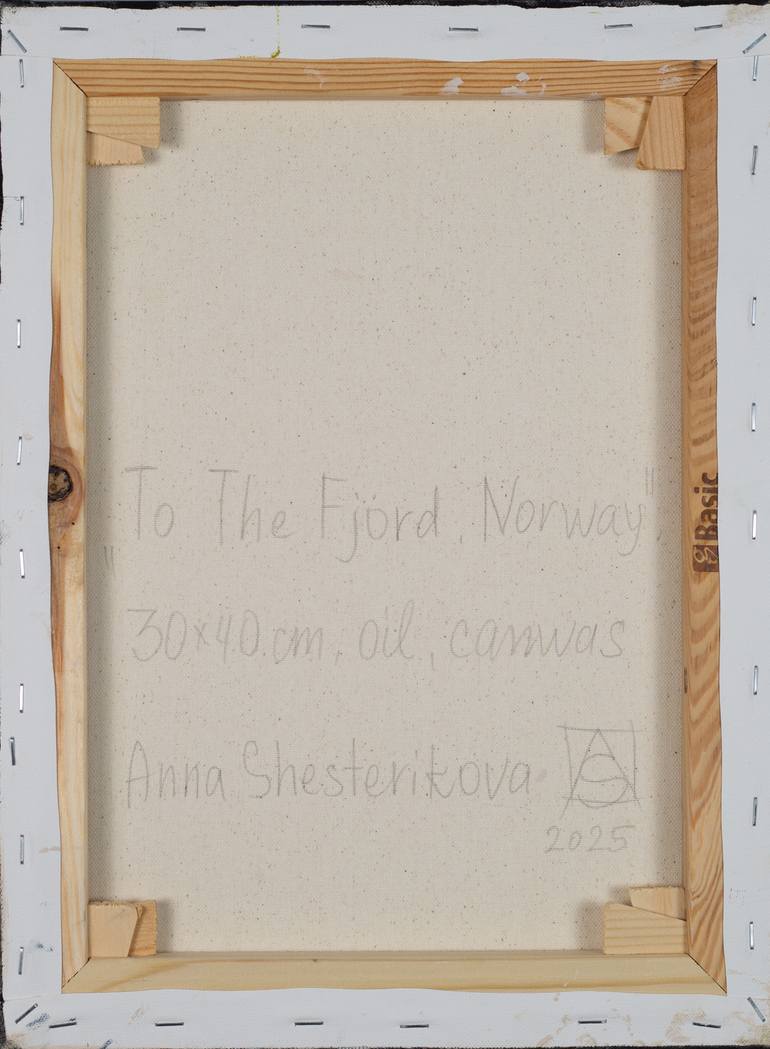 „To The Fjord, Norway".
30×40 cm, oil, canvas
Anna Shesterikova
AS
2025
Basic